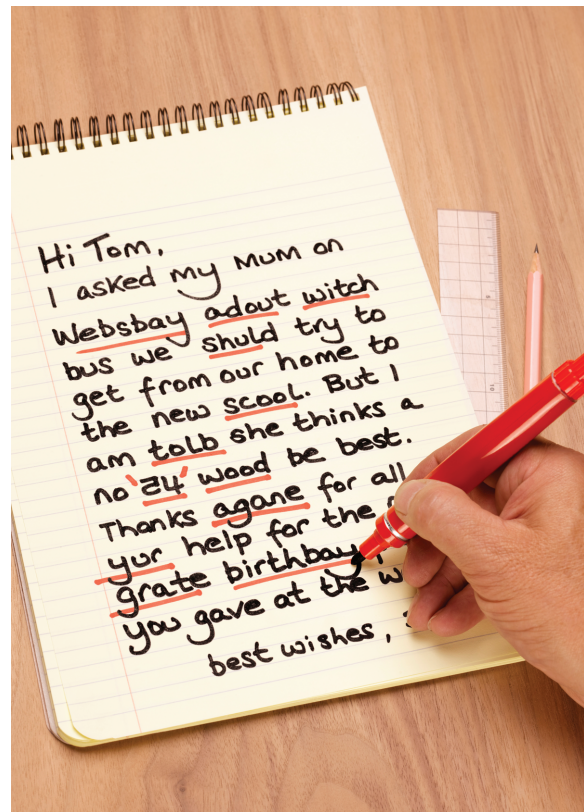 Hi Tom,
I asked my Mum on
Websbay adout witch
bus we shuld try to
get from our home to
the new scool. But I
am tolb she thinks a
no '24' wood be best.
Thanks agane for all
yur help for the
grate birthbay
you gave at the
best wishes,